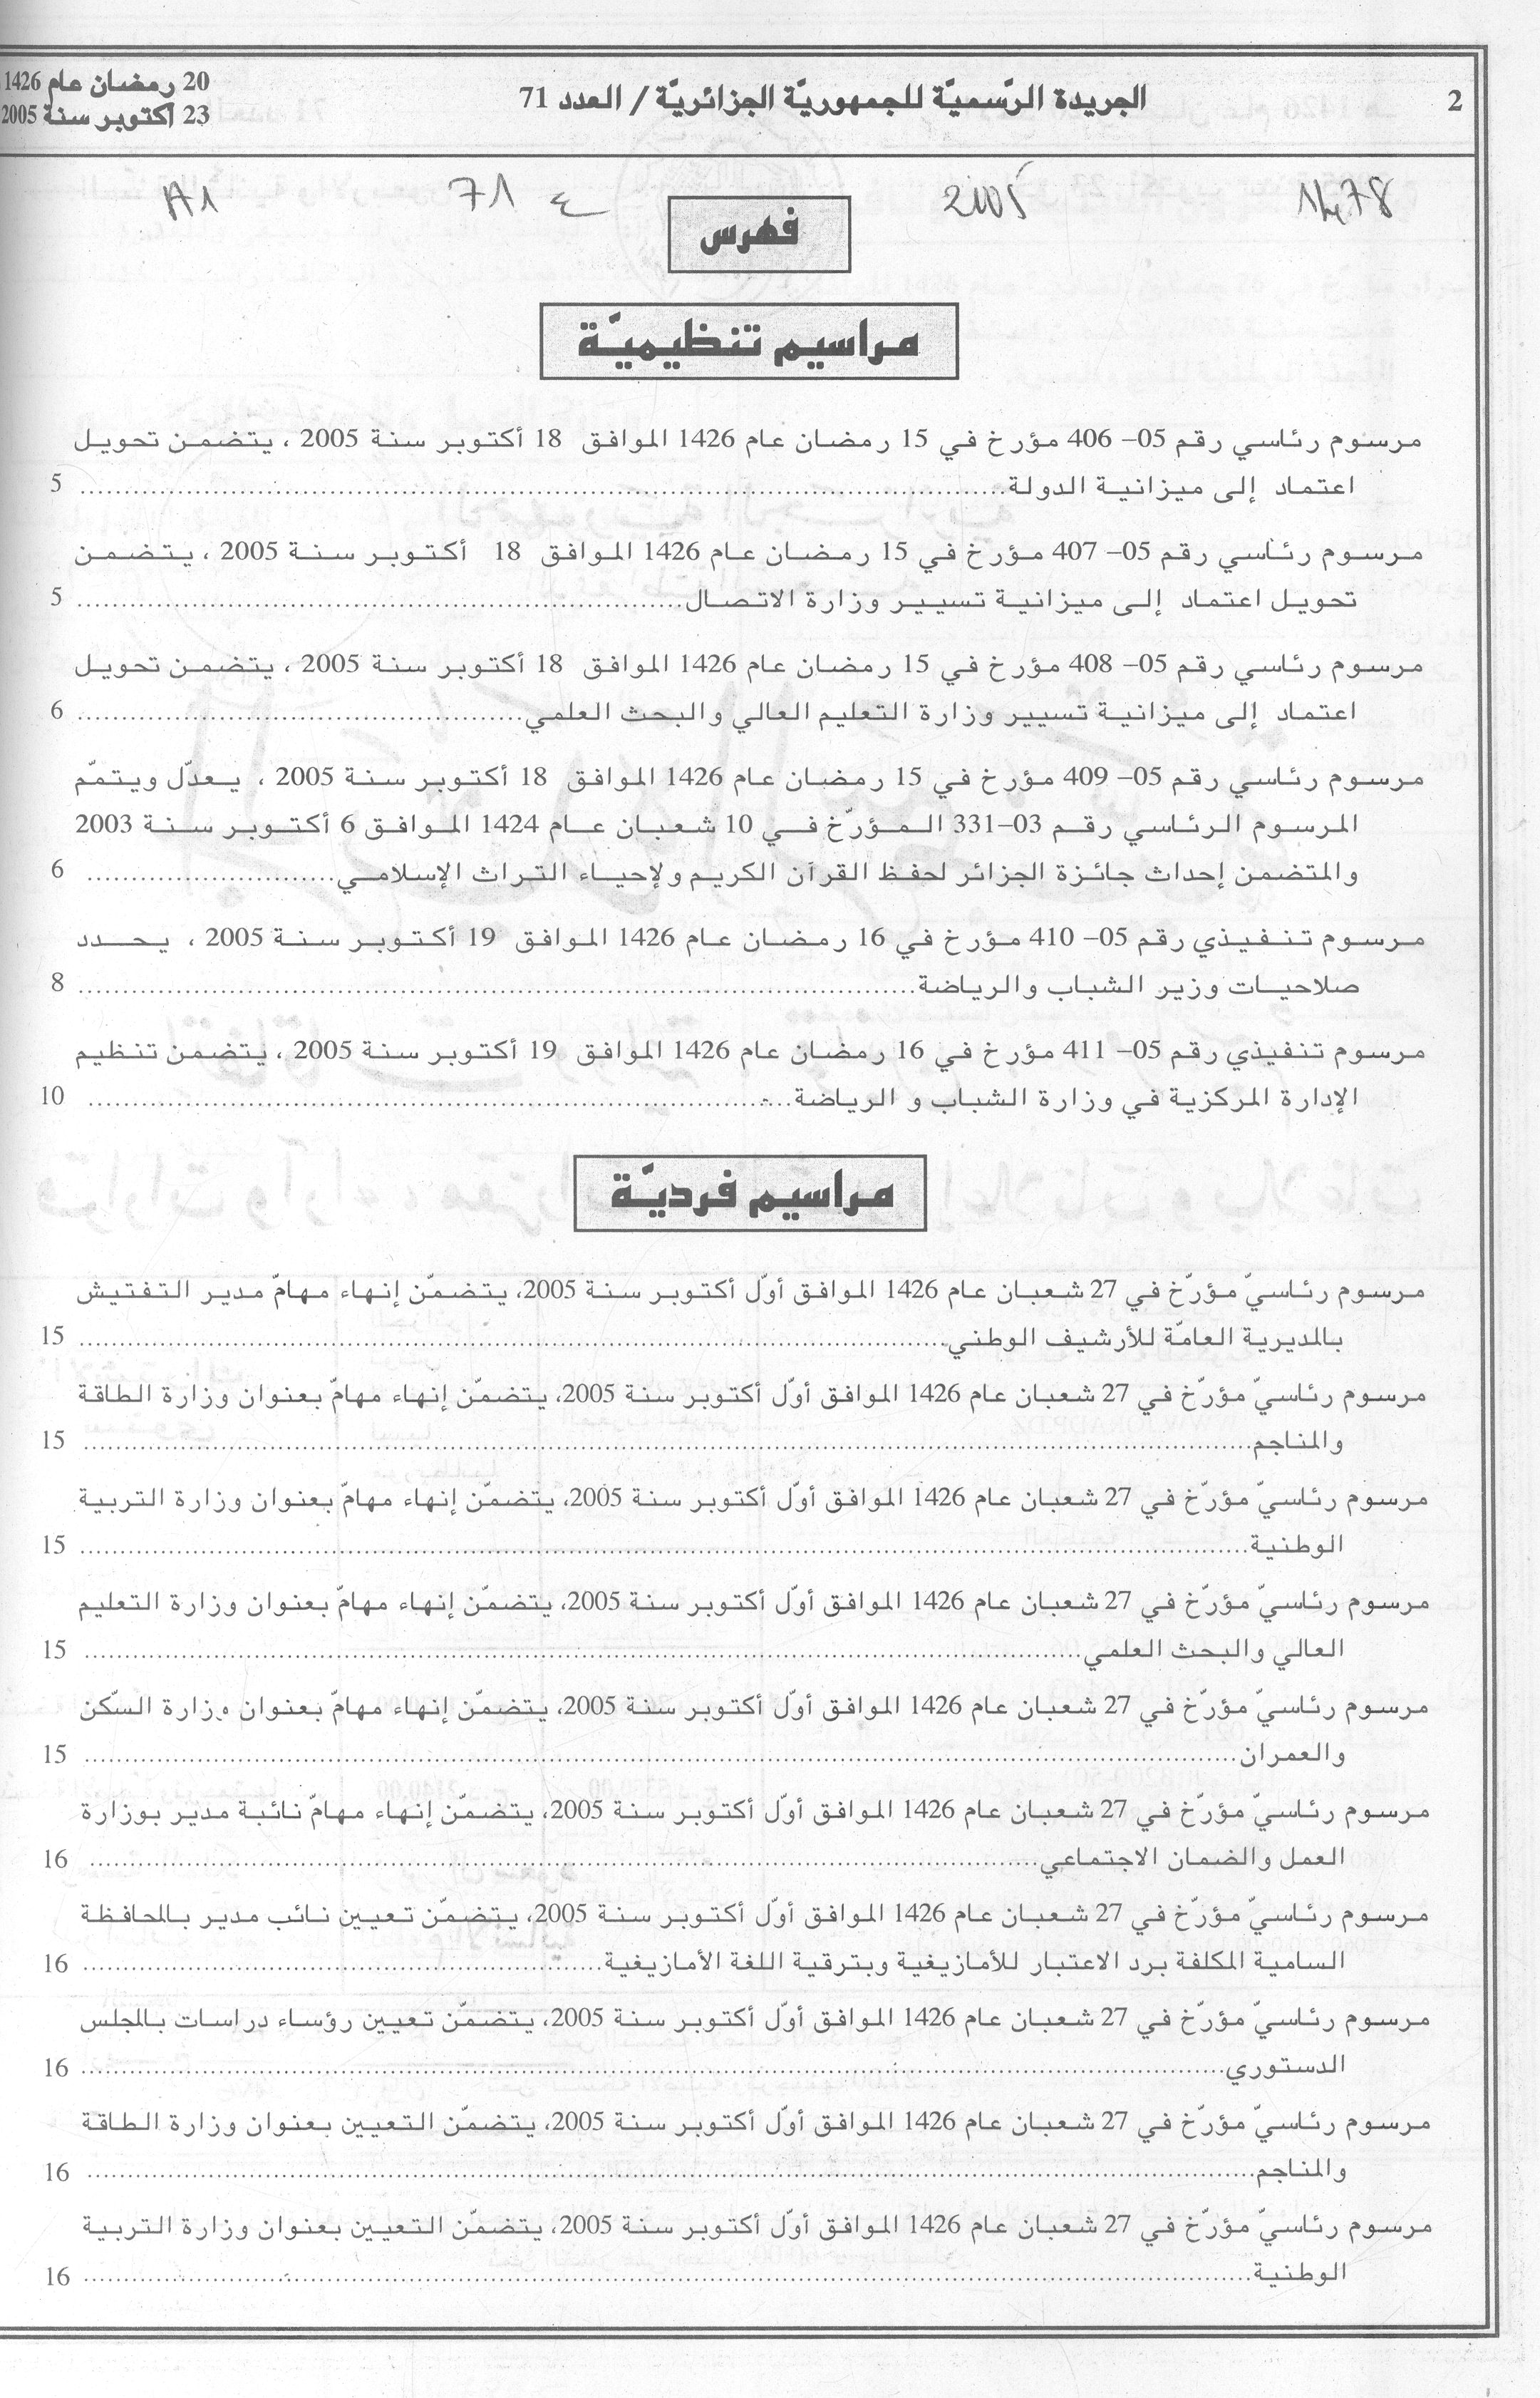 2
الجريدة الرّسميّة للجمهوريّة الجزائريّة / العدد 71
20 رمضان عام 1426
23 أكتوبر سنة 2005
1478
2005
ع 71
A1
فهرس
مراسيم تنظيميّة
مرسوم رئاسي رقم 05– 406 مؤرخ في 15 رمضان عام 1426 الموافق 18 أكتوبر سنة 2005 ، يتضمن تحويل
اعتماد إلى ميزانية الدولة........................................ 5
مرسوم رئاسي رقم 05– 407 مؤرخ في 15 رمضان عام 1426 الموافق 18 أكتوبر سنة 2005 ، يتضمن
تحويل اعتماد إلى ميزانية تسيير وزارة الاتصال........................................ 5
مرسوم رئاسي رقم 05– 408 مؤرخ في 15 رمضان عام 1426 الموافق 18 أكتوبر سنة 2005 ، يتضمن تحويل
اعتماد إلى ميزانية تسيير وزارة التعليم العالي والبحث العلمي........................................ 6
مرسوم رئاسي رقم 05– 409 مؤرخ في 15 رمضان عام 1426 الموافق 18 أكتوبر سنة 2005 ، يعدّل ويتمّم
المرسوم الرئاسي رقم 03–331 المؤرّخ في 10 شعبان عام 1424 الموافق 6 أكتوبر سنة 2003
والمتضمن إحداث جائزة الجزائر لحفظ القرآن الكريم ولإحياء التراث الإسلامي............................ 6
مرسوم تنفيذي رقم 05– 410 مؤرخ في 16 رمضان عام 1426 الموافق 19 أكتوبر سنة 2005 ، يحدد
صلاحيات وزير الشباب والرياضة........................................ 8
مرسوم تنفيذي رقم 05– 411 مؤرخ في 16 رمضان عام 1426 الموافق 19 أكتوبر سنة 2005 ، يتضمن تنظيم
الإدارة المركزية في وزارة الشباب و الرياضة........................................ 10
مراسيم فرديّة
مرسوم رئاسيّ مؤرّخ في 27 شعبان عام 1426 الموافق أوّل أكتوبر سنة 2005، يتضمّن إنهاء مهامّ مدير التفتيش
بالمديرية العامّة للأرشيف الوطني........................................ 15
مرسوم رئاسيّ مؤرّخ في 27 شعبان عام 1426 الموافق أوّل أكتوبر سنة 2005، يتضمّن إنهاء مهامّ بعنوان وزارة الطاقة
والمناجم........................................ 15
مرسوم رئاسيّ مؤرّخ في 27 شعبان عام 1426 الموافق أوّل أكتوبر سنة 2005، يتضمّن إنهاء مهامّ بعنوان وزارة التربية
الوطنية........................................ 15
مرسوم رئاسيّ مؤرّخ في 27 شعبان عام 1426 الموافق أوّل أكتوبر سنة 2005، يتضمّن إنهاء مهامّ بعنوان وزارة التعليم
العالي والبحث العلمي........................................ 15
مرسوم رئاسيّ مؤرّخ في 27 شعبان عام 1426 الموافق أوّل أكتوبر سنة 2005، يتضمّن إنهاء مهامّ بعنوان وزارة السكّن
والعمران........................................ 15
مرسوم رئاسيّ مؤرّخ في 27 شعبان عام 1426 الموافق أوّل أكتوبر سنة 2005، يتضمّن إنهاء مهامّ نائبة مدير بوزارة
العمل والضمان الاجتماعي........................................ 16
مرسوم رئاسيّ مؤرّخ في 27 شعبان عام 1426 الموافق أوّل أكتوبر سنة 2005، يتضمّن تعيين نائب مدير بالمحافظة
السامية المكلفة برد الاعتبار للأمازيغية وبترقية اللغة الأمازيغية........................................ 16
مرسوم رئاسيّ مؤرّخ في 27 شعبان عام 1426 الموافق أوّل أكتوبر سنة 2005، يتضمّن تعيين رؤساء دراسات بالمجلس
الدستوري........................................ 16
مرسوم رئاسيّ مؤرّخ في 27 شعبان عام 1426 الموافق أوّل أكتوبر سنة 2005، يتضمّن التعيين بعنوان وزارة الطاقة
والمناجم........................................ 16
مرسوم رئاسيّ مؤرّخ في 27 شعبان عام 1426 الموافق أوّل أكتوبر سنة 2005، يتضمّن التعيين بعنوان وزارة التربية
الوطنية........................................ 16